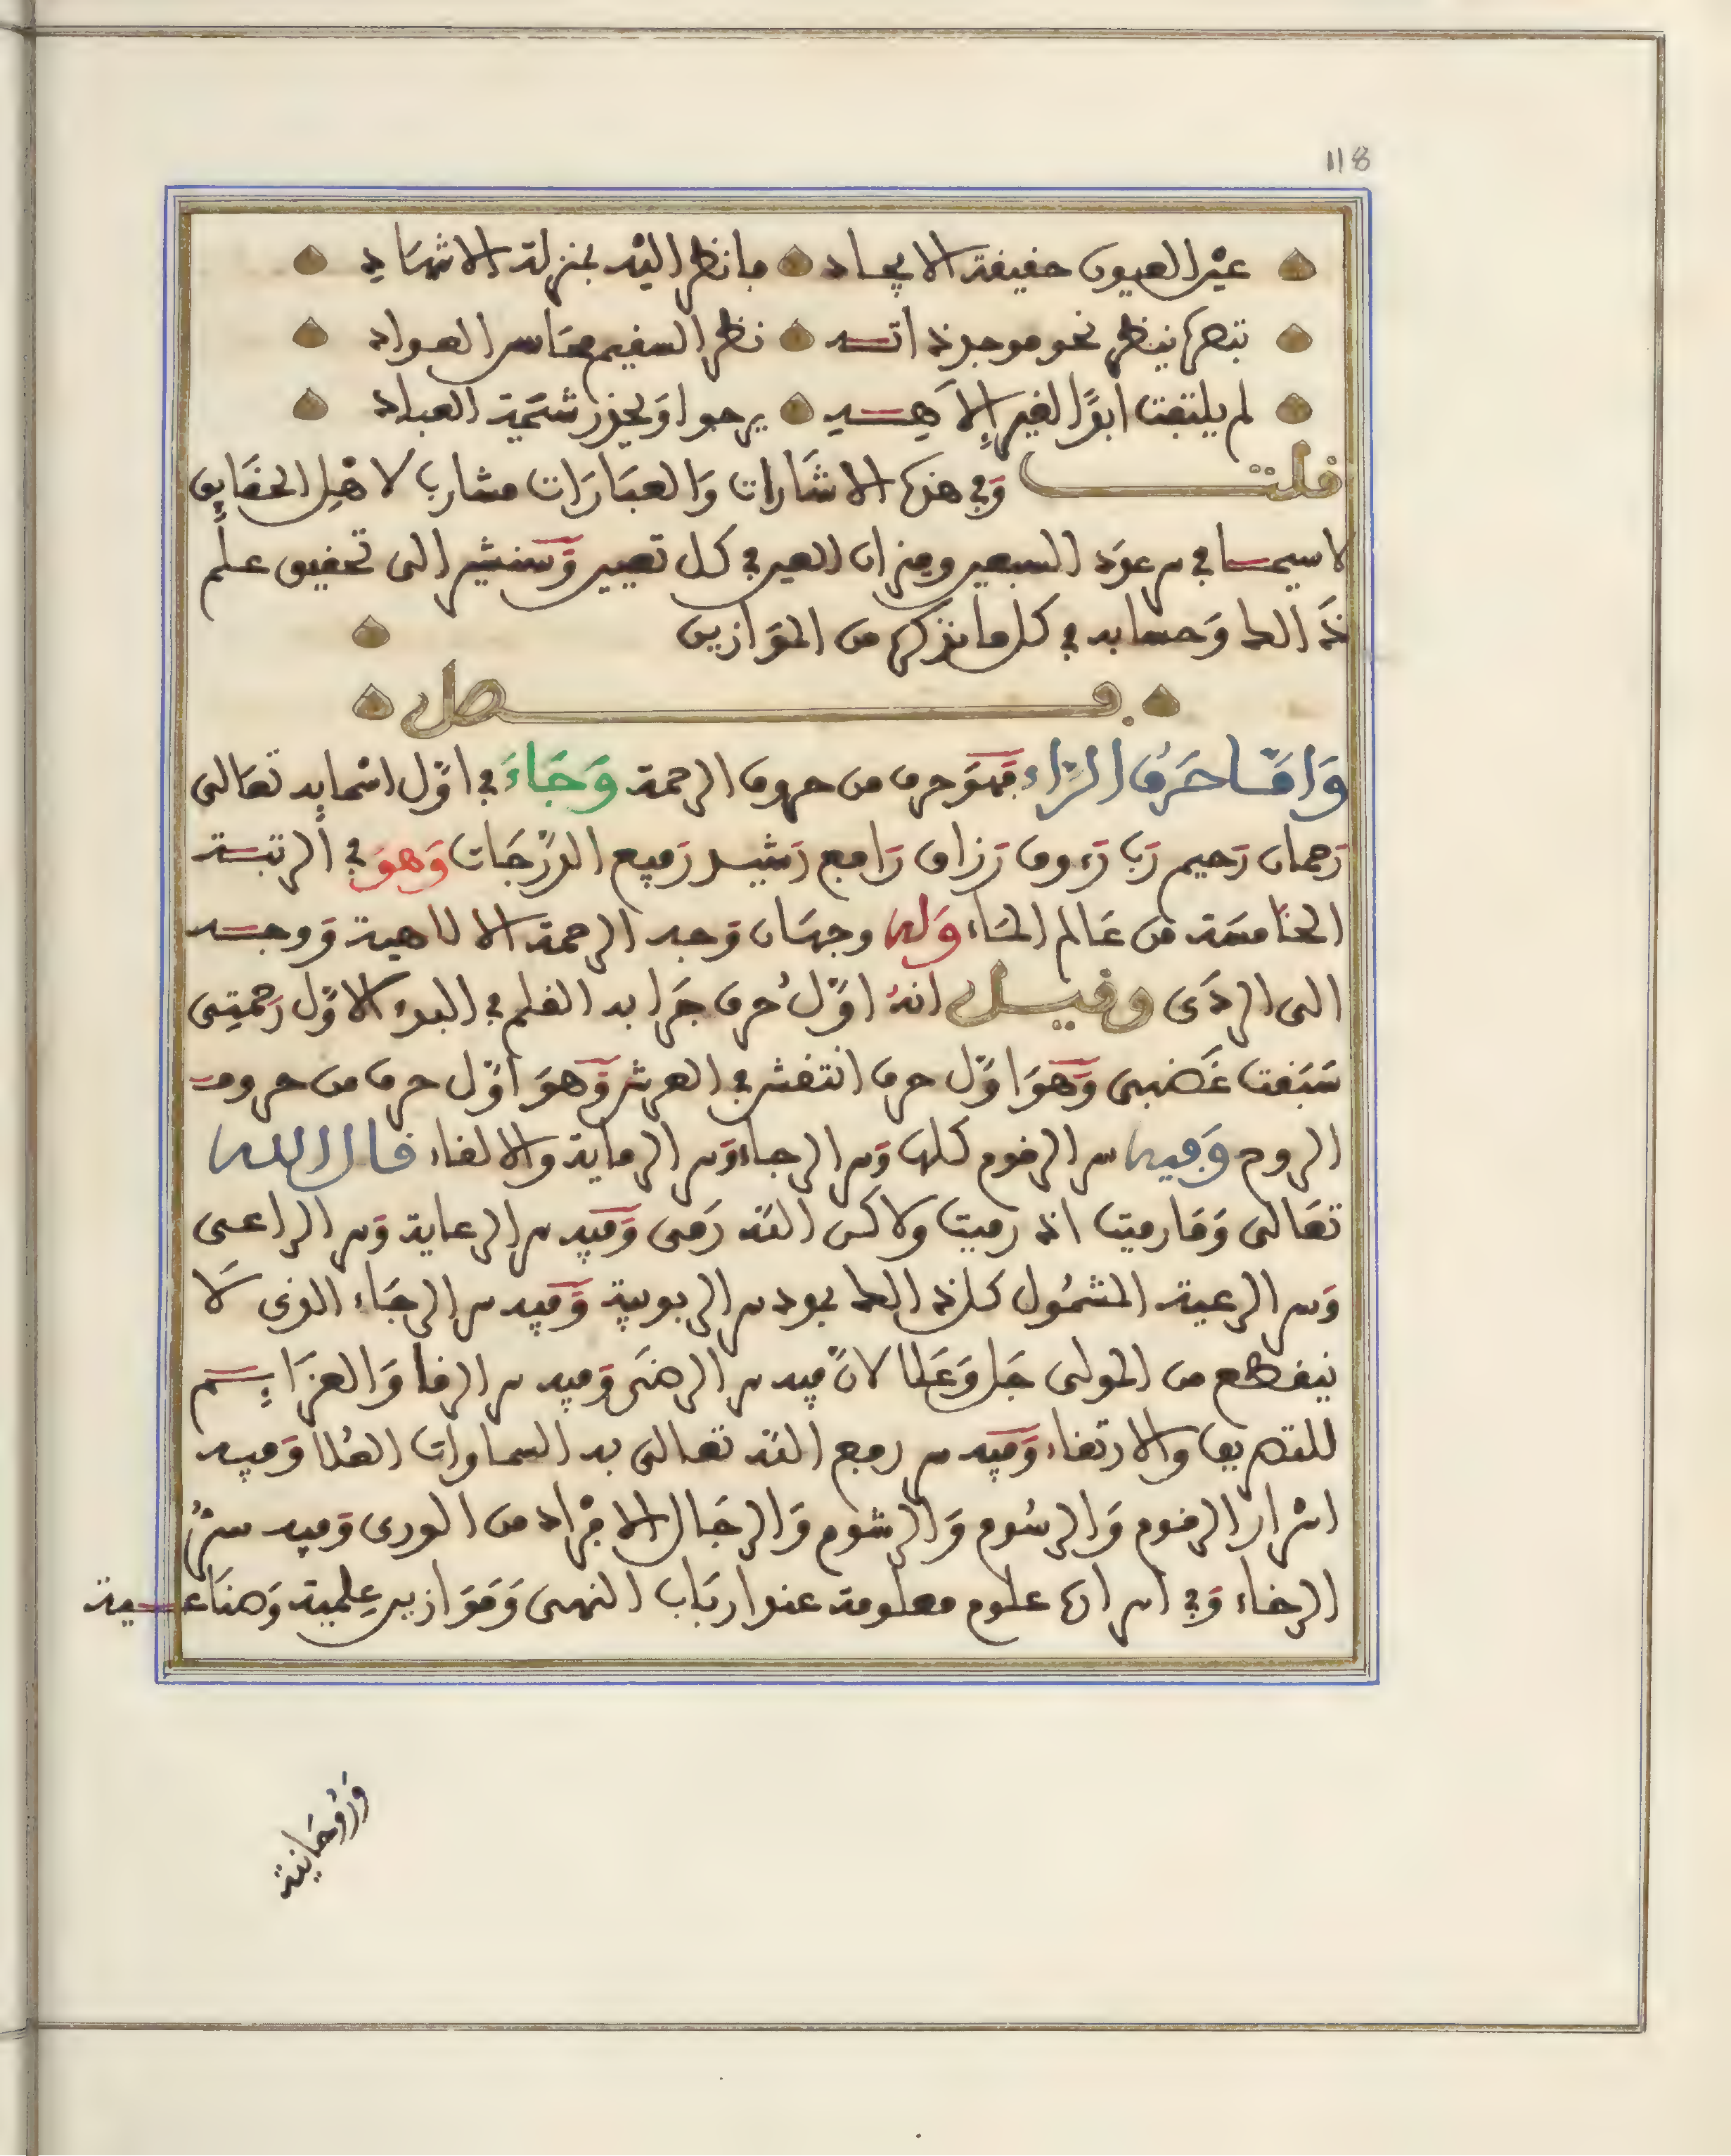 118
عين العيون حقيقة الايجاد فانظر اليه بمنزلة الاشهاد
تبصره ينظر نحو موجد ذاته نظر السقيم محاسن العواد
لم يلتفت ابدًا لغير إلاهه يرجوا ويحذر شيمة العباد
قلت وفي هذه الاشارات والعبارات مشارب لاهل الحقايق
لاسيما في سر عود السبعين وميزان العين في كل تعيين وسنشير الى تحقيق علم
ذالك وحسابه في كل ما نذكره من الموازين
فصل
وَامّا حَرْف الرّاء فهو حرف من حروف الرحمة وَجَاءَ في اوّل اسْمايه تعالى
رحمان رحيم رب رءوف رزاق رافع رشيد رفيع الدّرجات وَهوَ في الرتبة
الخامسة من عالم الماء وله وجهان وجه الرحمة الالاهية ووجه
الى الردى وقيل انهُ اوّلُ حرف جرا به القلم في البدء الاوّل رحمتِى
سَبَقت غَضبى وَهوَ اوّل حرف انتقش في العرش وَهوَ اوّل حرف من حروف
الروح وَفيه سر الرقوم كلها وسر الرجاء وسر الرماية والالقاء قال الله
تعالى وَمَا رميت اذ رميت ولاكن الله رَمى وَفيه سر الرعاية وسر الراعى
وسر الرعية المشمُول كل ذالك بوده سر الربوبية وَفيه سر الرجَاء الذى لَا
ينقطع من المولى جَل وَعَلا لانّ فيه سر الرضَى وَفيه سر الرقا وَالعزَايم
للتصريف والارتقاء وَفيه سر رفع الله تعالى به السماوات العُلا وَفيه
اسْرار الرقوم وَالرسُوم وَالرشوم وَالرجَال الافْراد من الورى وفيه سرّ
الرخاء وَفي اسراره علوم معلومة عند ارباب النهى وَمَوَازين عِلمية وَصنَاعية
وَرُوحَانية